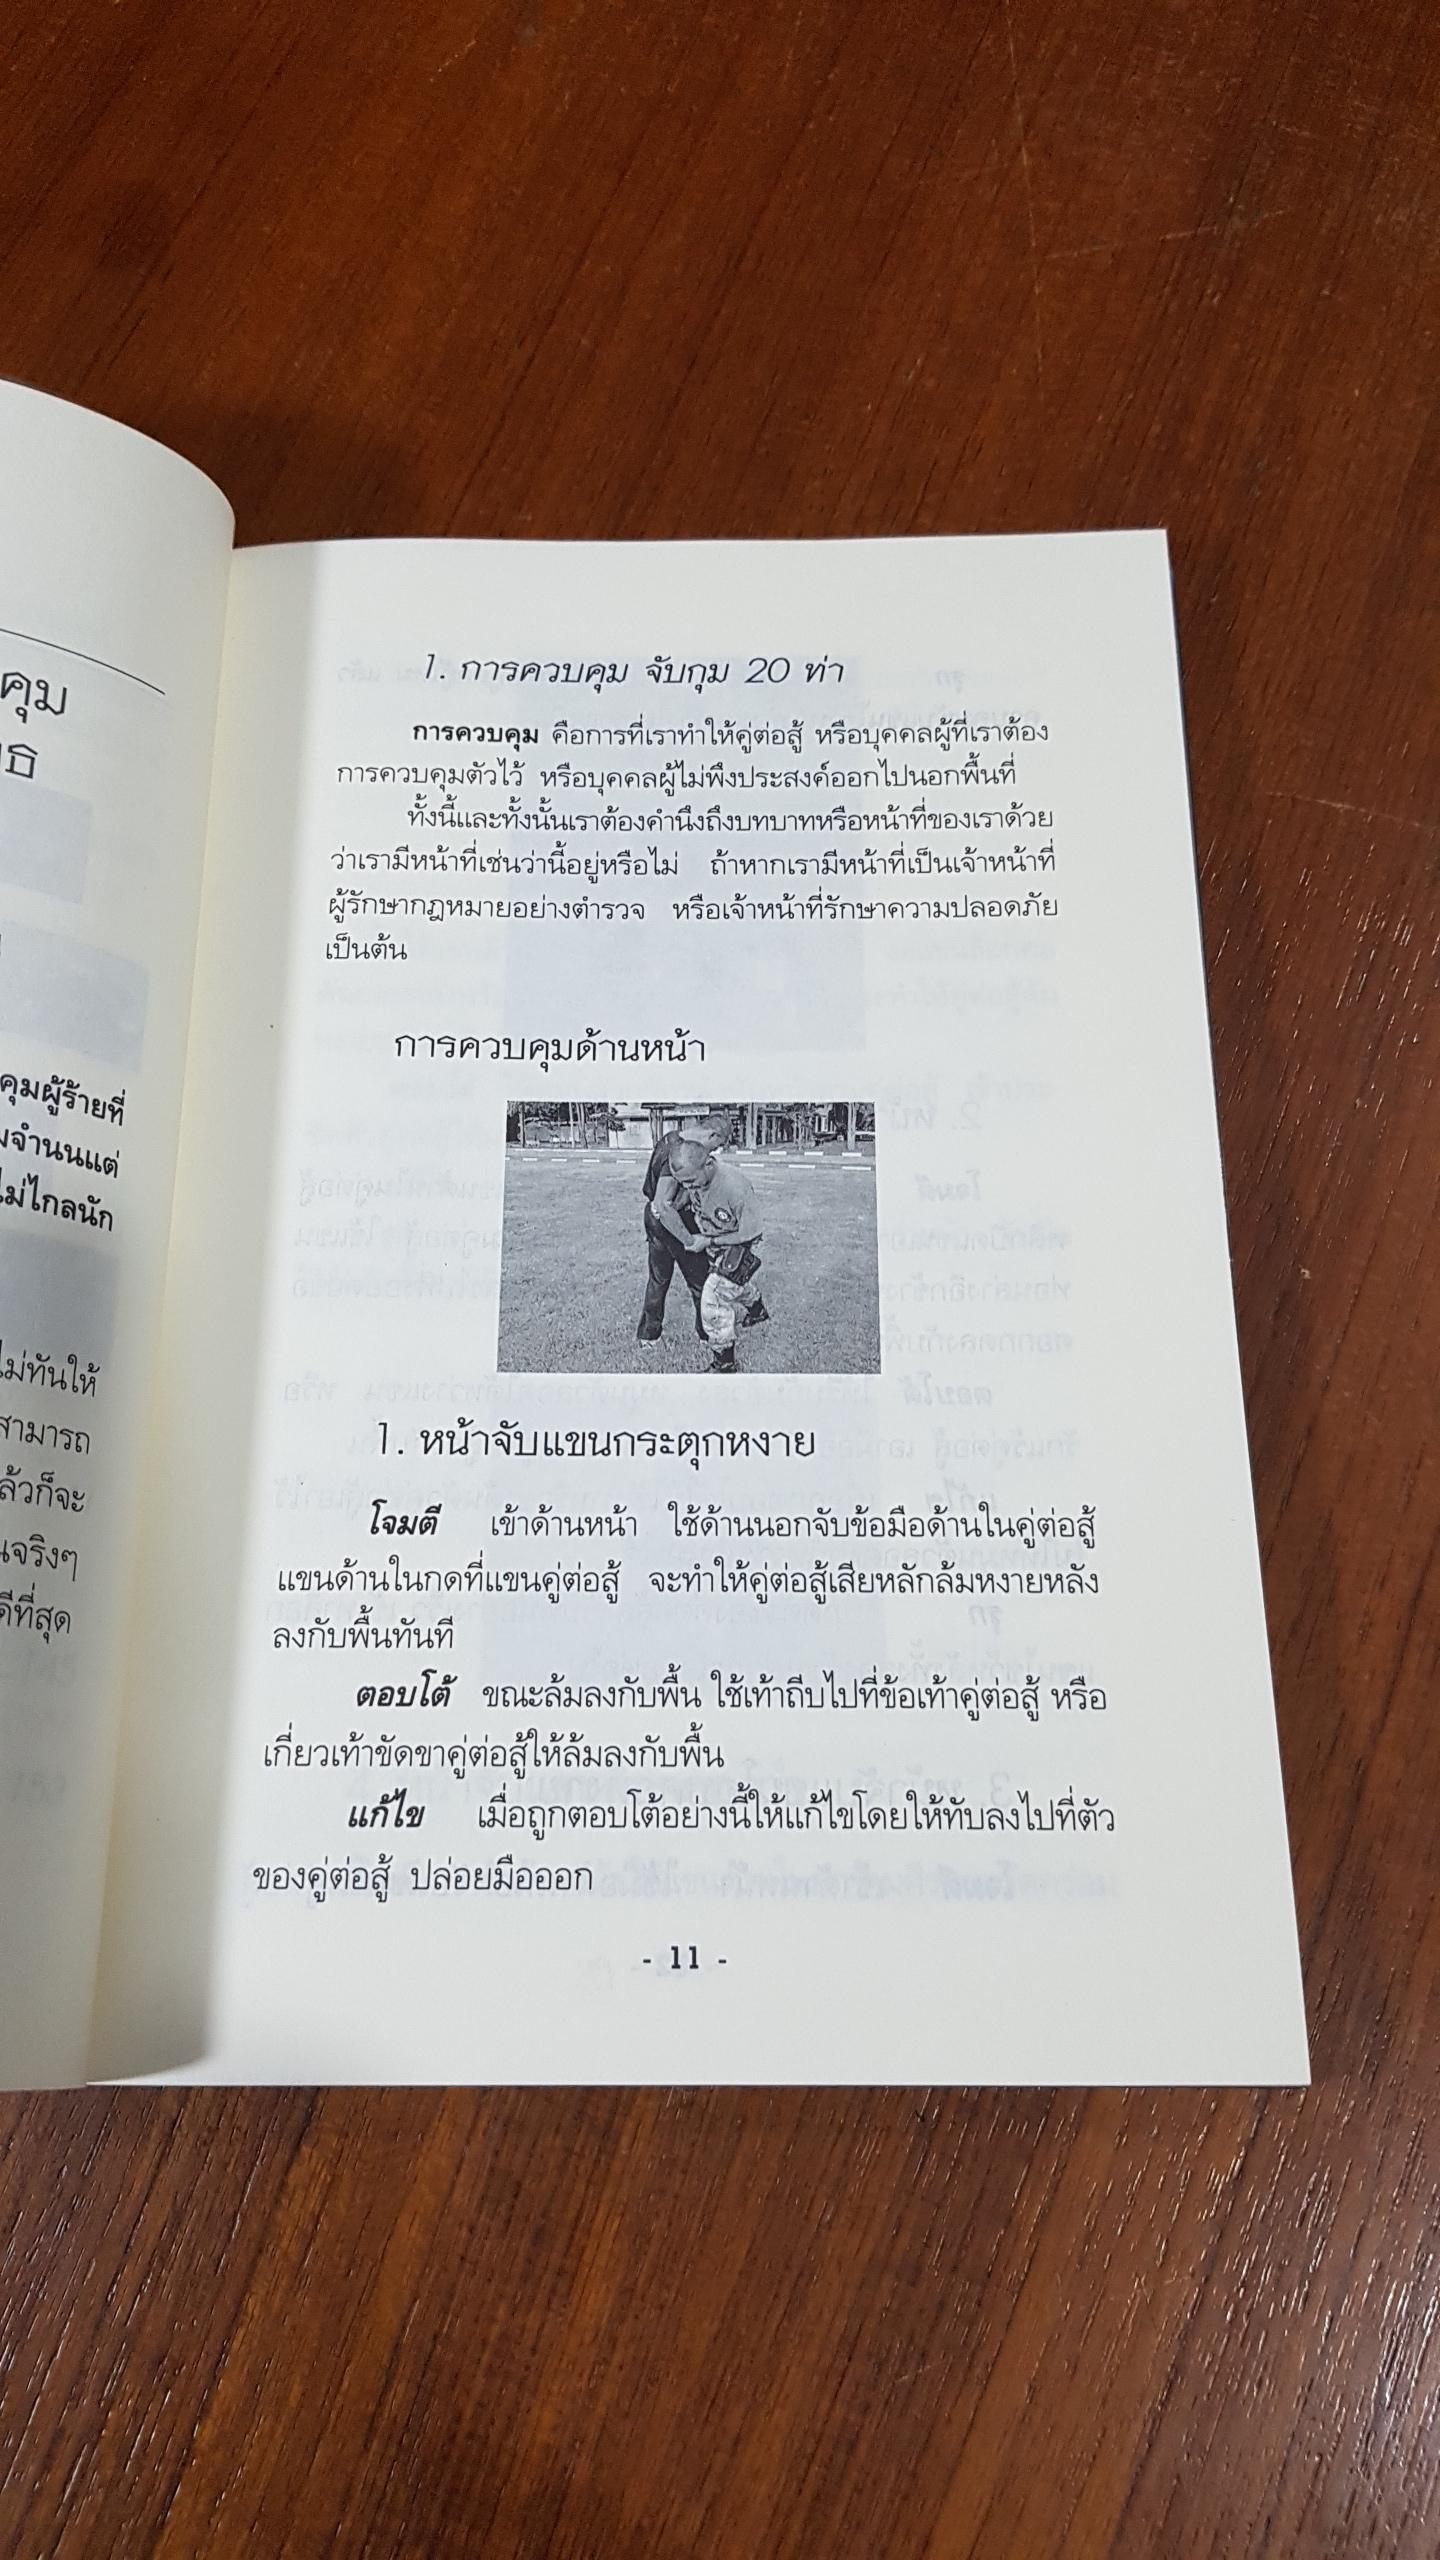 คุม
คุมผู้ร้ายที่
จำนนแต่
ไม่ไกลนัก
ไม่ทันให้
สามารถ
ล้วก็จะ
จริงๆ
ดีที่สุด
1. การควบคุม จับกุม 20 ท่า
การควบคุม คือการที่เราทำให้คู่ต่อสู้ หรือบุคคลผู้ที่เราต้อง
การควบคุมตัวไว้ หรือบุคคลผู้ไม่พึงประสงค์ออกไปนอกพื้นที่
ทั้งนี้และทั้งนั้นเราต้องคำนึงถึงบทบาทหรือหน้าที่ของเราด้วย
ว่าเรามีหน้าที่เช่นว่านี้อยู่หรือไม่ ถ้าหากเรามีหน้าที่เป็นเจ้าหน้าที่
ผู้รักษากฎหมายอย่างตำรวจ หรือเจ้าหน้าที่รักษาความปลอดภัย
เป็นต้น
การควบคุมด้านหน้า
1. หน้าจับแขนกระตุกหงาย
โจมตี เข้าด้านหน้า ใช้ด้านนอกจับข้อมือด้านในคู่ต่อสู้
แขนด้านในกดที่แขนคู่ต่อสู้ จะทำให้คู่ต่อสู้เสียหลักล้มหงายหลัง
ลงกับพื้นทันที
ตอบโต้ ขณะล้มลงกับพื้น ใช้เท้าถีบไปที่ข้อเท้าคู่ต่อสู้ หรือ
เกี่ยวเท้าขัดขาคู่ต่อสู้ให้ล้มลงกับพื้น
แก้ไข เมื่อถูกตอบโต้อย่างนี้ให้แก้ไขโดยให้ทับลงไปที่ตัว
ของคู่ต่อสู้ ปล่อยมือออก
- 11 -